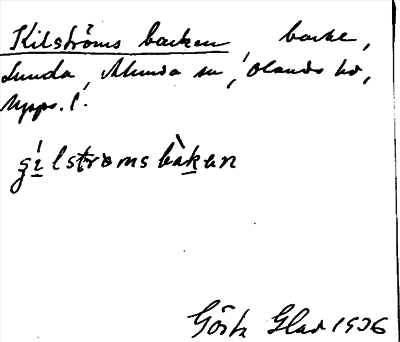 Kilströms backen, backe,
Lunda, Alunda sn, Olands hd,
Upps. l.
gilstromsbàkan
Gösta Glad 1926